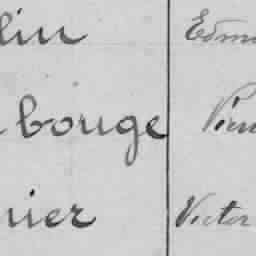 lin Edm
bouge Pier
nier Victor